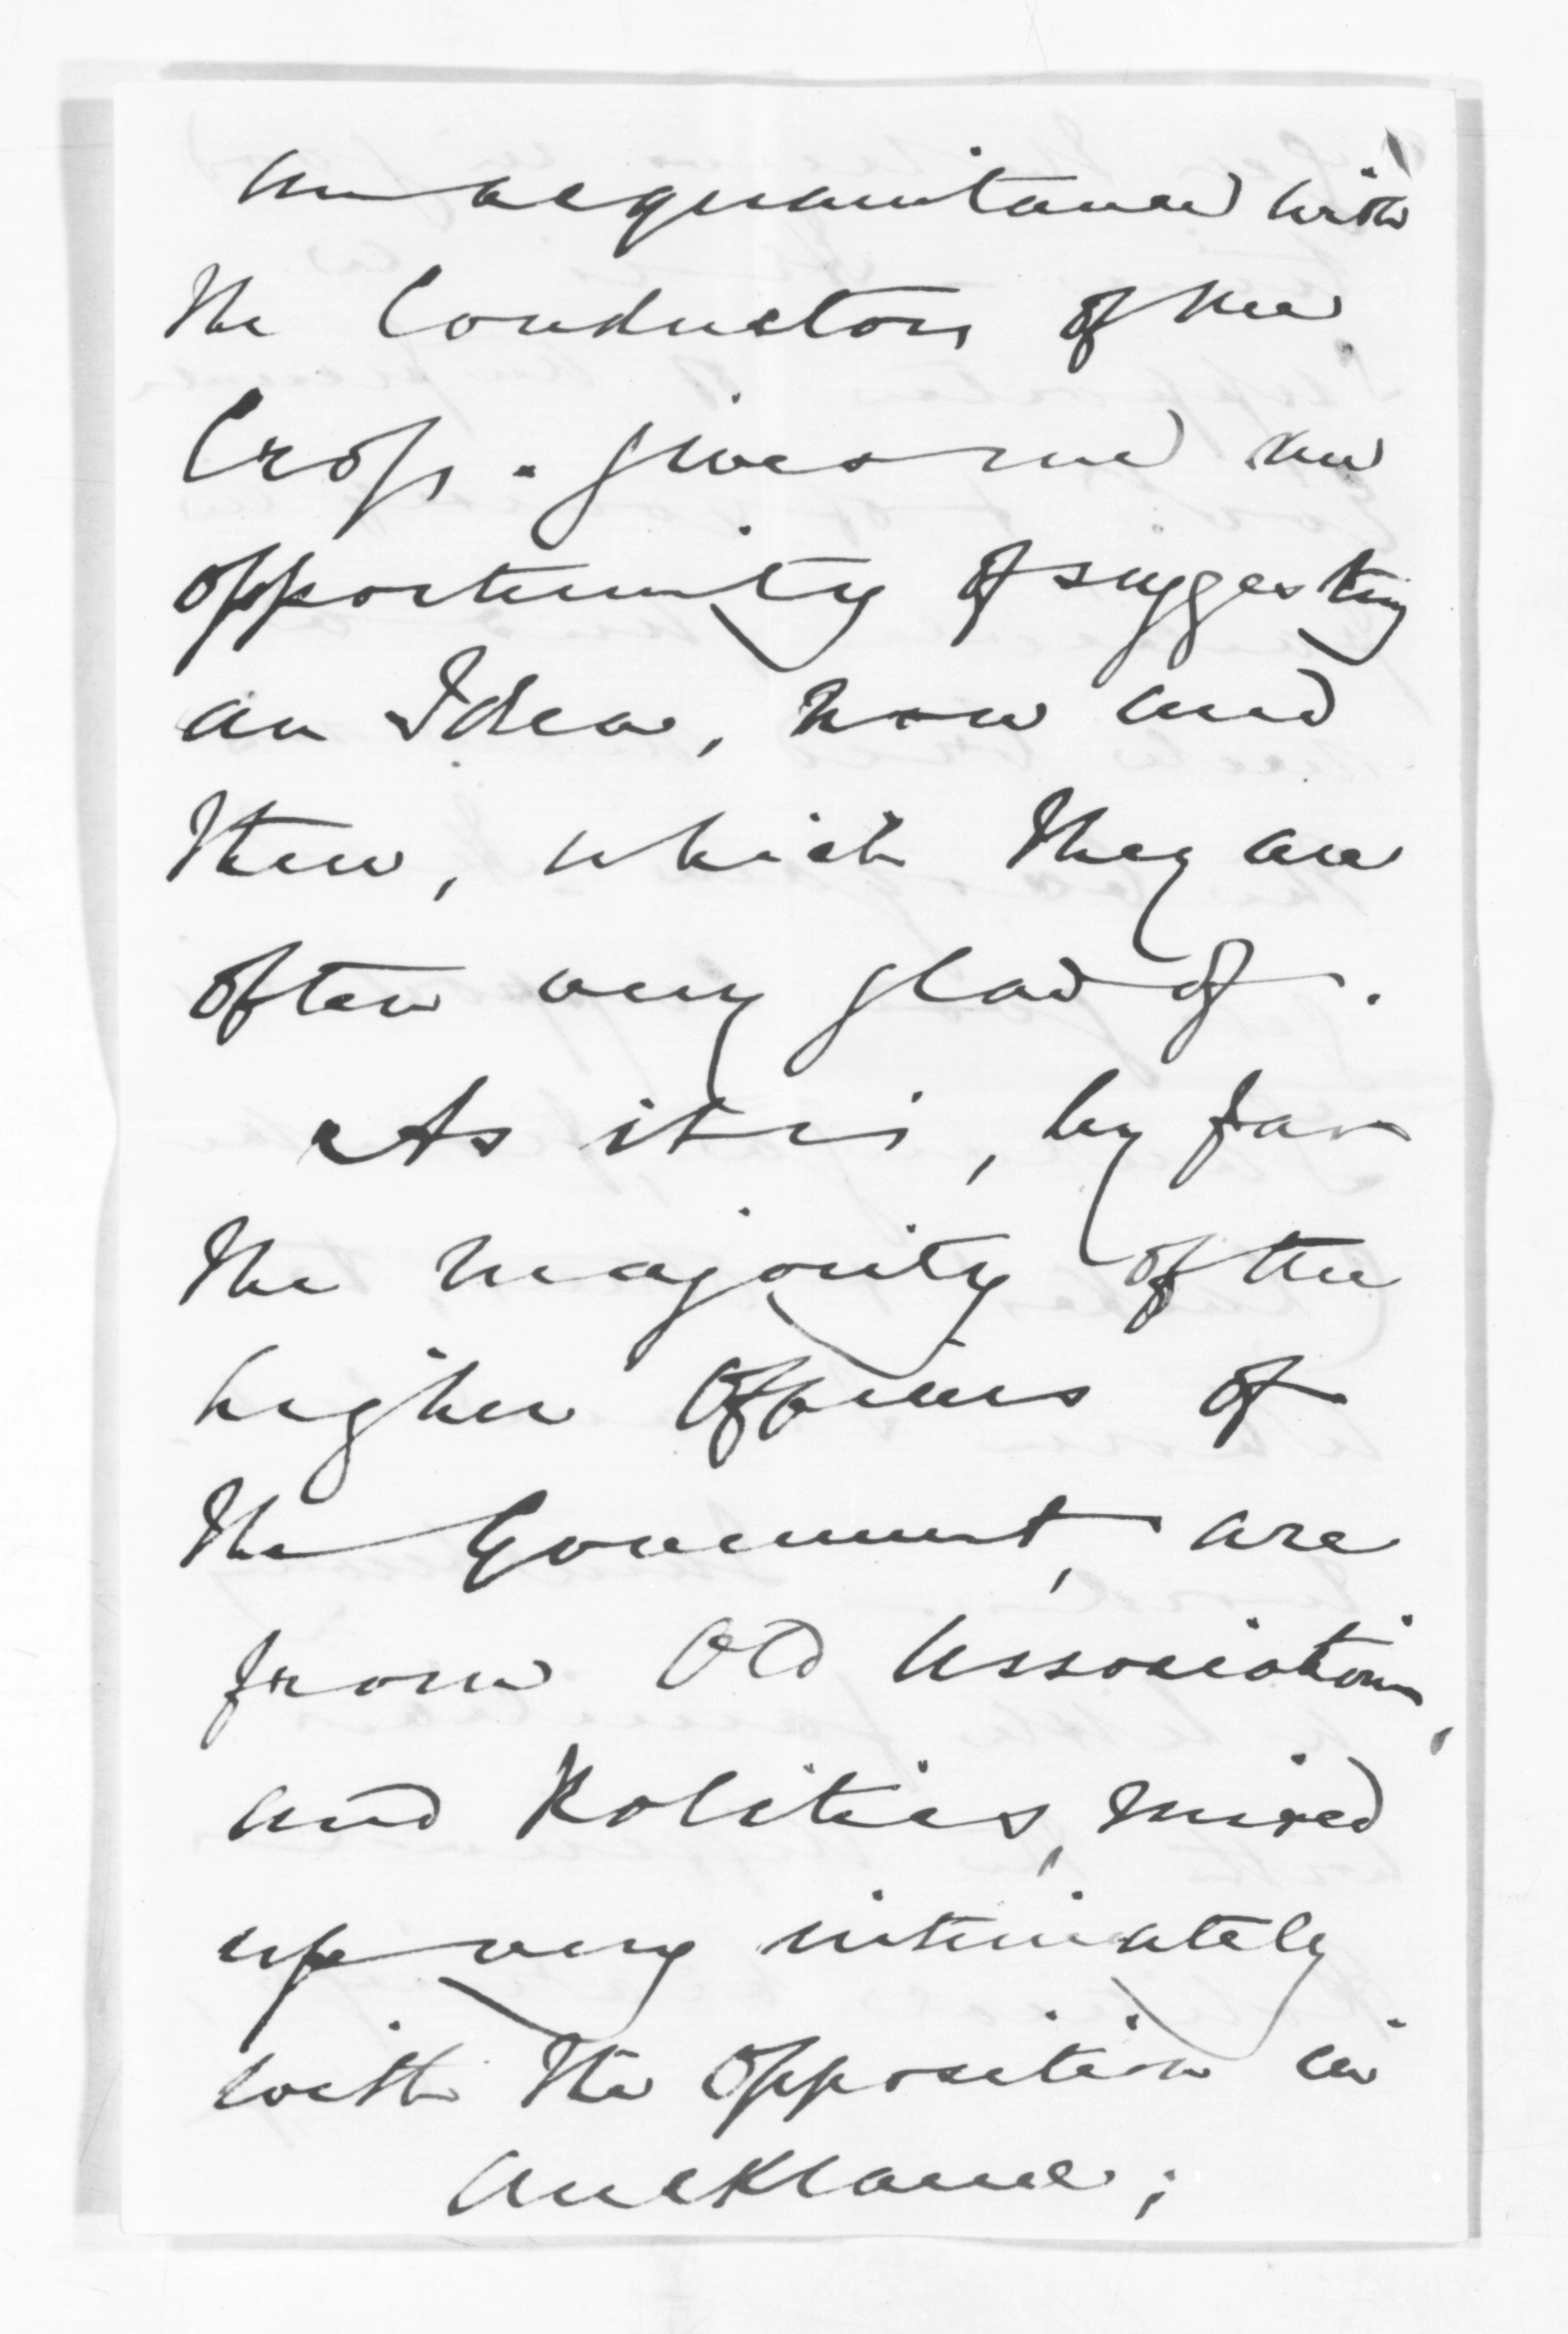 An acquaintance with
the Conductors of the
Cross. gives me an
opportunity of suggesting
an Idea, now and
then, which they are
often very glad of.
As it is, by far
the majority of the
higher Officers of
the Government, are
from Old Associations,
and Politics, mixed
up very intimately
with the Opposition in
Auckland;